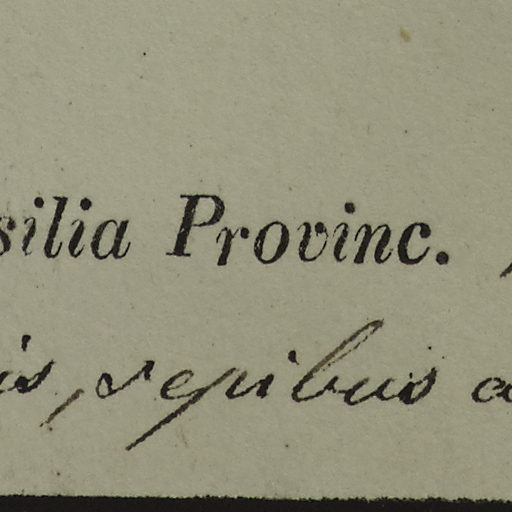 silia Provinc.
is, sepibus